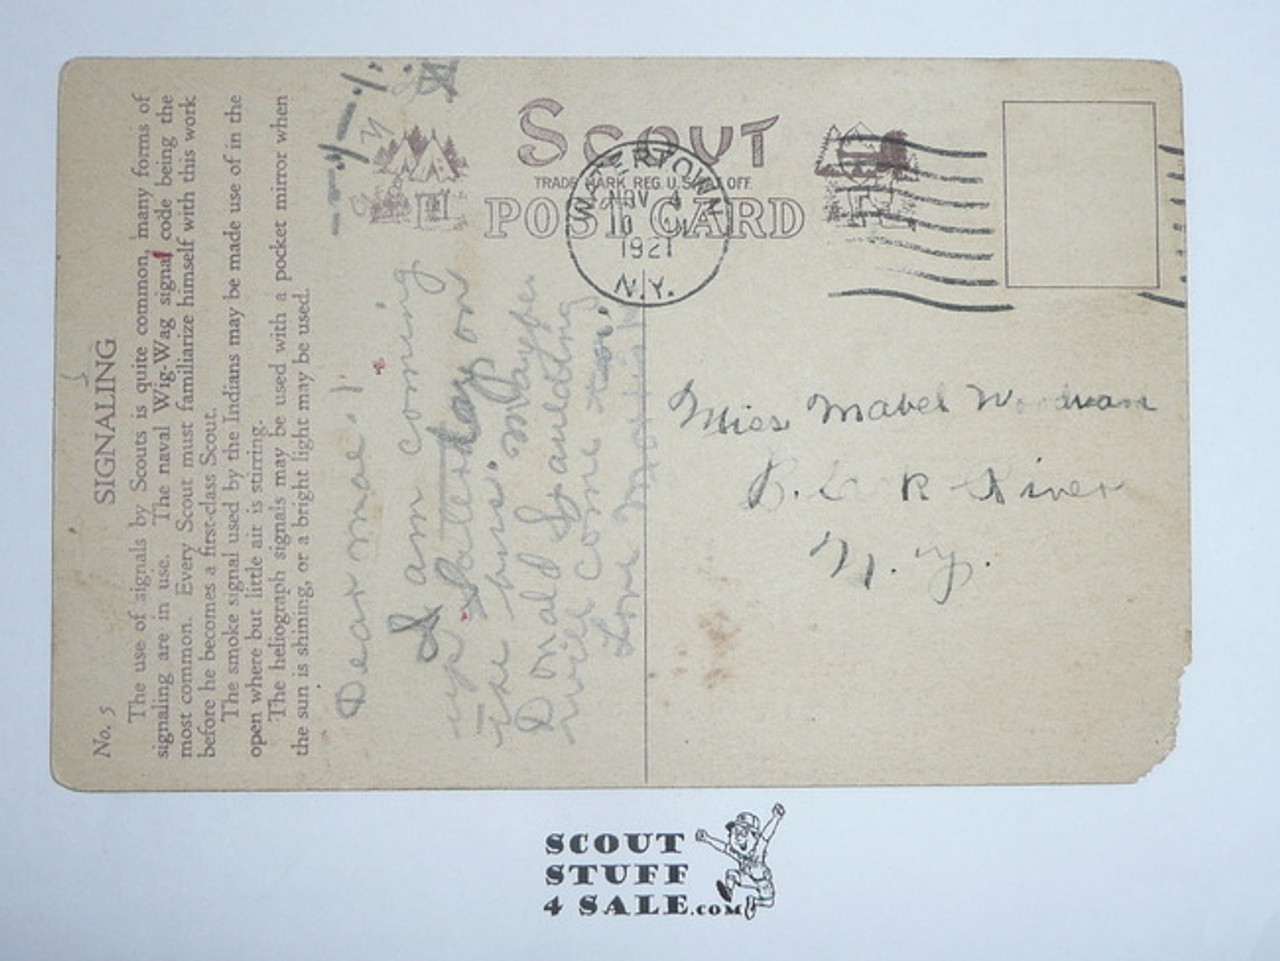 No. 5
SIGNALING
The use of signals by Scouts is quite common, many forms of
signaling are in use. The naval Wig-Wag signal code being the
most common. Every Scout must familiarize himself with this work
before he becomes a first-class Scout.
The smoke signal used by the Indians may be made use of in the
open where but little air is stirring.
The heliograph signals may be used with a pocket mirror when
the sun is shining, or a bright light may be used.
Dear Mae:
I am coming
up Satterday on
the bus.
Donald Spaulding
will come too.
Love
SCOUT
TRADE MARK REG. U.S. PAT. OFF.
POST CARD
WATERTOWN
NOV 4
1921
N.Y.
Miss Mabel
River
N. Y.
SCOUT
STUFF
4 SALE.COM